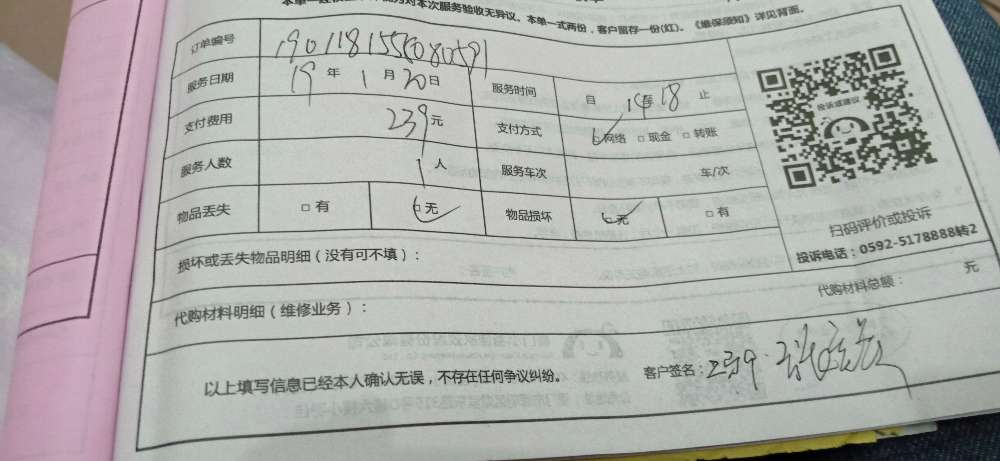 对本次服务验收无异议。本单一式两份，客户留存一份(红)。《维保须知》详见背面。
订单编号
服务日期 19 年 1 月 20 日 服务时间 自 至 18 止
支付费用 239 元 支付方式 □网络 □ 现金 □ 转账
服务人数 1 人 服务车次 车/次
物品丢失 □ 有 □ 无 物品损坏 □ 无 □ 有
投诉或建议
扫码评价或投诉
投诉电话：0592-5178888转2
损坏或丢失物品明细（没有可不填）：
代购材料明细（维修业务）： 代购材料总额： 元
以上填写信息已经本人确认无误，不存在任何争议纠纷。 客户签名：